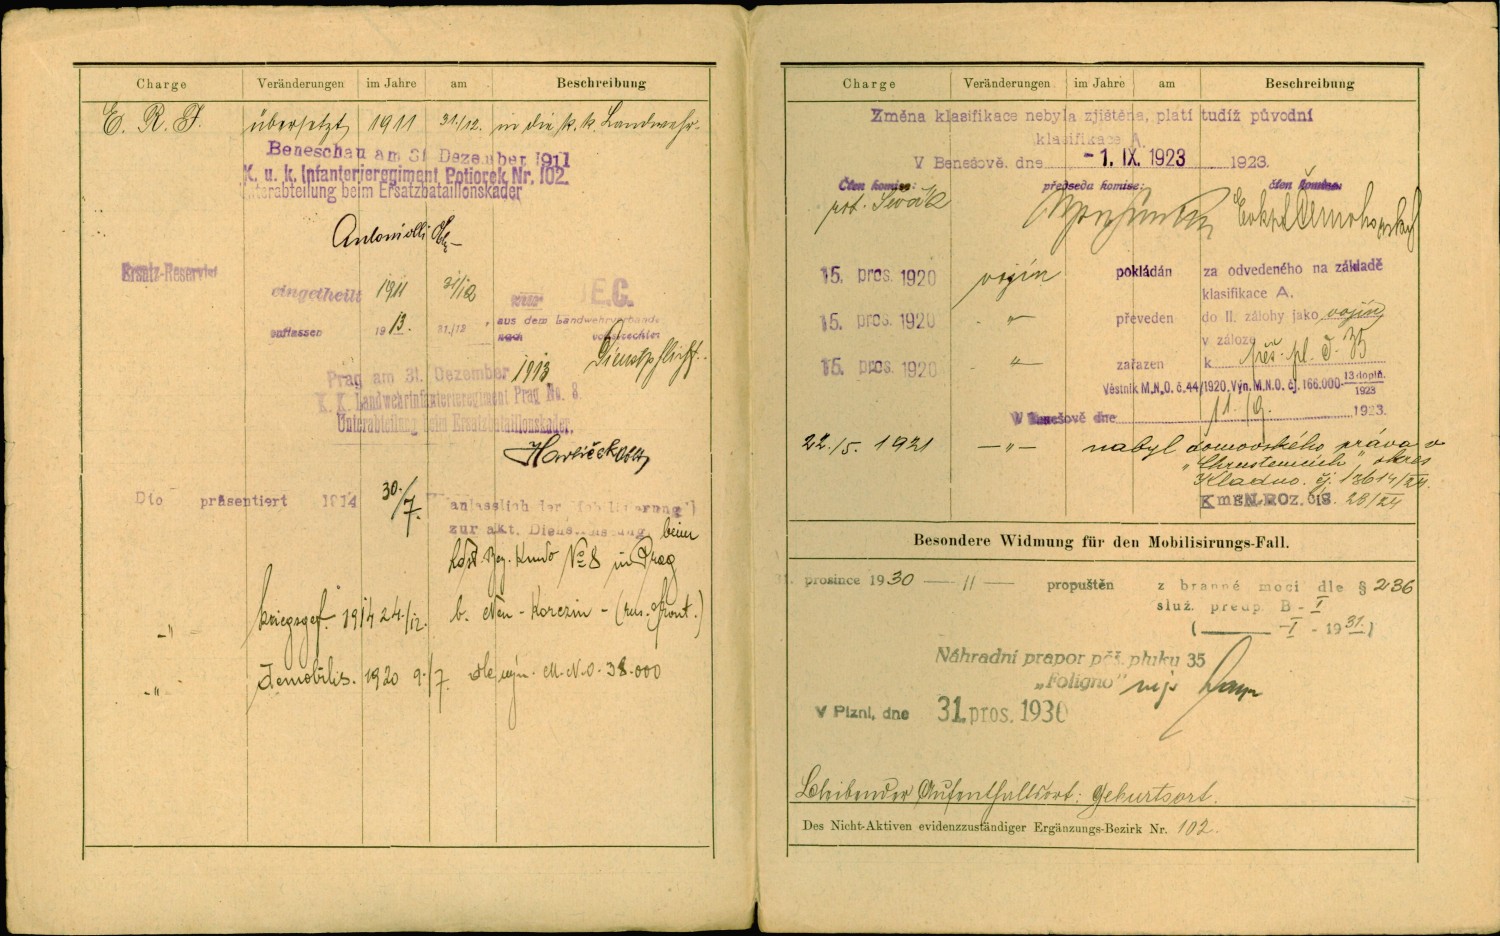 Charge Veränderungen im Jahre am Beschreibung
E. R. I. übersetzt 1911 31./12. in die k. k. Landwehr.
Beneschau am 31 Dezember 1911
K. u. k. Infanterieregiment Potiorek Nr. 102.
Unterabteilung beim Ersatzbataillonskader
Antoniolli
Ersatz-Reservist
eingetheilt 1911 31/12
entlassen 1913. 31./12 aus dem Landwehrverbande
nach vollstreckter
Dienstpflicht.
Prag am 31. Dezember 1913
K. K. Landwehrinfanterieregiment Prag No. 8.
Unterabteilung beim Ersatzbataillonskader.
Havlíček Oblt
Dto präsentiert 1914 30./7. anlässlich der Mobilisierung
zur akt. Dienstleistung beim
Ldst. Bez. Kmdo No 8 in Prag
-"- kriegsgef. 1914 24./12. b. Neu-Korczin - (rus. Front.)
-"- Demobilis. 1920 9./7. dle výn. M.N.O. 38.000
Charge Veränderungen im Jahre am Beschreibung
Změna klasifikace nebyla zjištěna, platí tudíž původní
klasifikace A.
V Benešově, dne -1. IX. 1923 1923.
Člen komise: předseda komise: člen komise:
15. pros. 1920 vojín pokládán za odvedeného na základě
klasifikace A.
15. pros. 1920 -"- převeden do II. zálohy jako vojín
v záloze
15. pros. 1920 -"- zařazen k pěš. pl. č. 35
Věstník M.N.O. č. 44/1920, Výn. M.N.O. čj. 166.000-13 doplň./1923
V Benešově dne 11./9. 1923.
22./5. 1921 -"- nabyl domovského práva v
„Chrustenicích" okres
Kladno. čj. 13614/24.
KMEN. ROZ. ČIS. 28/24
Besondere Widmung für den Mobilisirungs-Fall.
31. prosince 1930 -"- propuštěn z branné moci dle § 236
služ. předp. B-I
( I - 1931.)
Náhradní prapor pěš. pluku 35
„Foligno"
V Plzni, dne 31. pros. 1930
Bleibender Aufenthaltsort: Geburtsort.
Des Nicht-Aktiven evidenzzuständiger Ergänzungs-Bezirk Nr. 102.